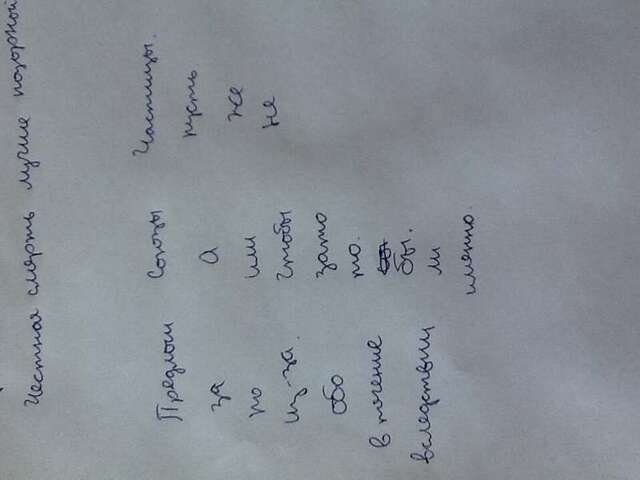 Честная смерть лучше позорной
Предлоги Союзы Частицы.
за а пусть
по или же
из-за. чтобы не
обо зато
в течение то.
вследствии бы.
ли
именно.